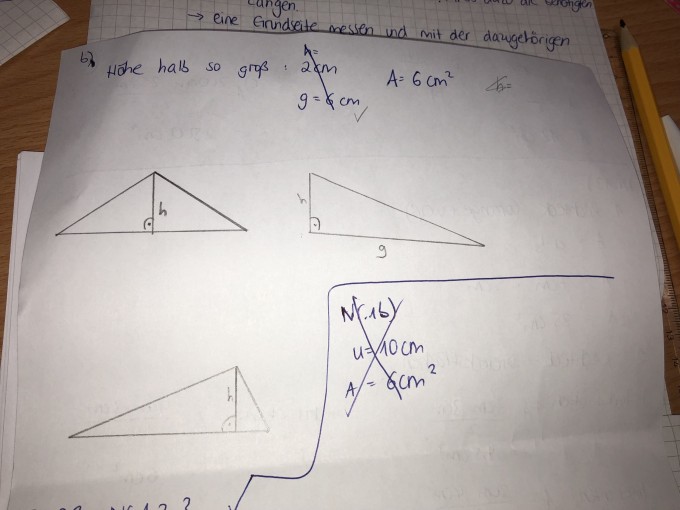 Längen.
→ eine Grundseite messen und mit der dazugehörigen
b) Höhe halb so groß: 2cm A = 6 cm²
h=
g = 6 cm ✓
h
h
g
Nr. 1b)
u = 10cm
A = 6cm²
h